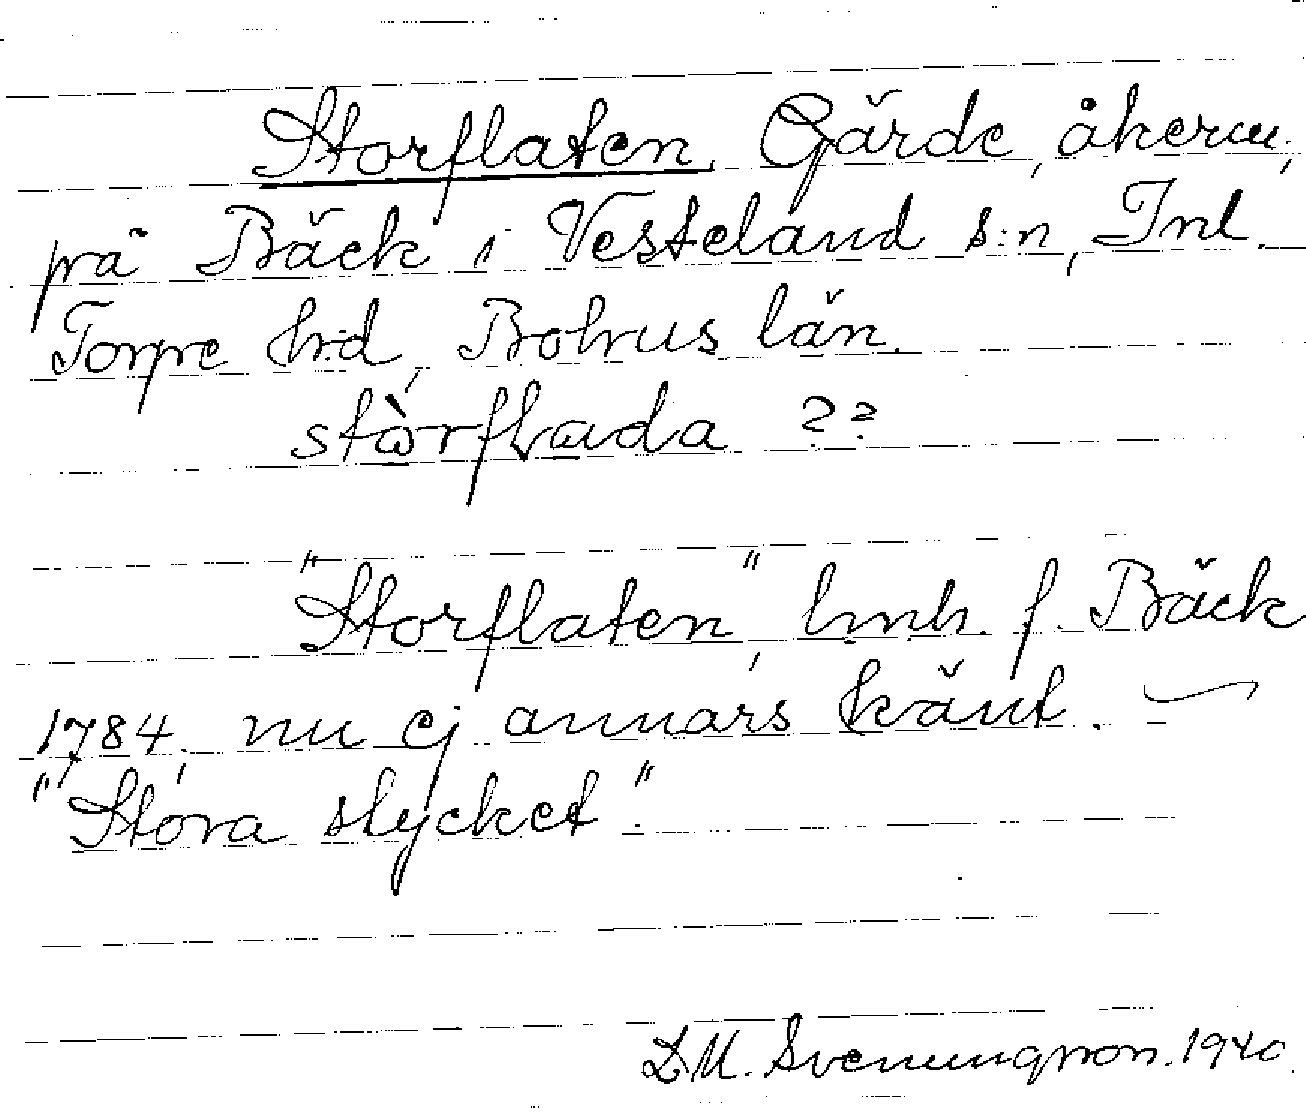 Storflaten, Gärde, åkerm,
på Bäck i Vesteland s:n, Inl.
Torpe hrd, Bohus län.
stòrflada ??
"Storflaten", hmh. f. Bäck
1784, nu ej annars känt. –
"Stora stycket."
D.M. Svenungsson. 1940.